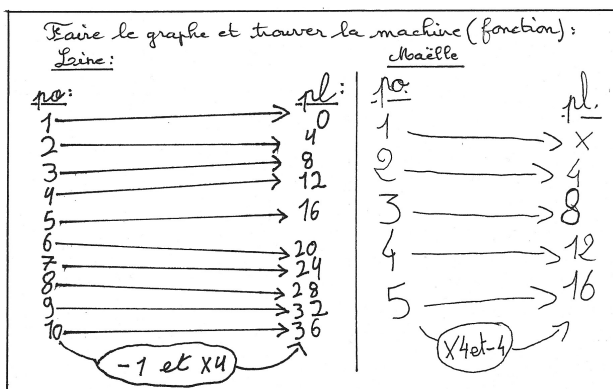 Faire le graphe et trouver la machine (fonction):
Line:
po: pl:
1 0
2 4
3 8
4 12
5 16
6 20
7 24
8 28
9 32
10 36
-1 et x4
Maëlle
po. pl.
1 x
2 4
3 8
4 12
5 16
x4et-4